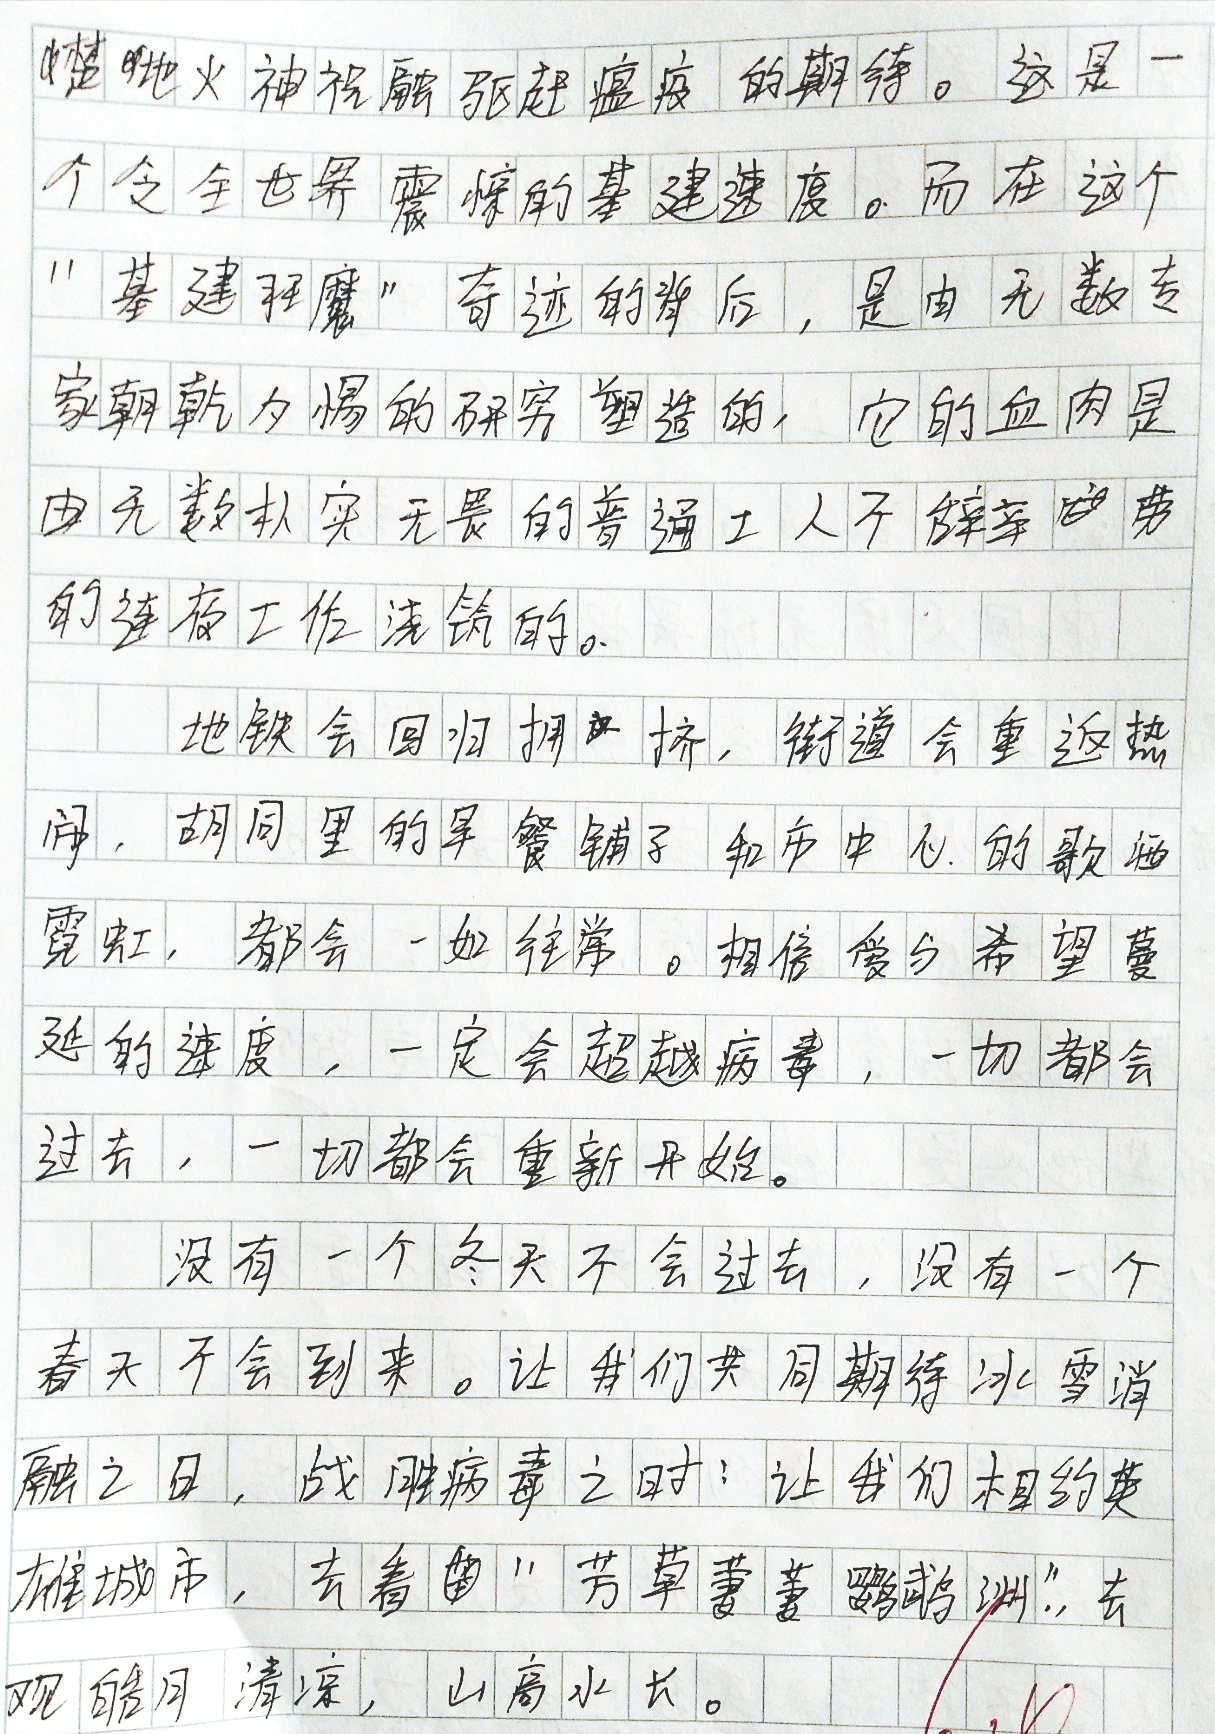 火神祝融驱赶瘟疫的期待。这是一
个令全世界震惊的基建速度。而在这个
“基建狂魔”奇迹的背后，是由无数专
家朝乾夕惕的研究塑造的，它的血肉是
由无数朴实无畏的普通工人不辞辛劳
的连夜工作浇筑的。
地铁会回归拥挤，街道会重返热
闹，胡同里的早餐铺子和市中心的歌酒
霓虹，都会一如往常。相信爱与希望蔓
延的速度，一定会超越病毒，一切都会
过去，一切都会重新开始。
没有一个冬天不会过去，没有一个
春天不会到来。让我们共同期待冰雪消
融之日，战胜病毒之时；让我们相约英
雄城市，去看“芳草萋萋鹦鹉洲”，去
观皓月清凉，山高水长。